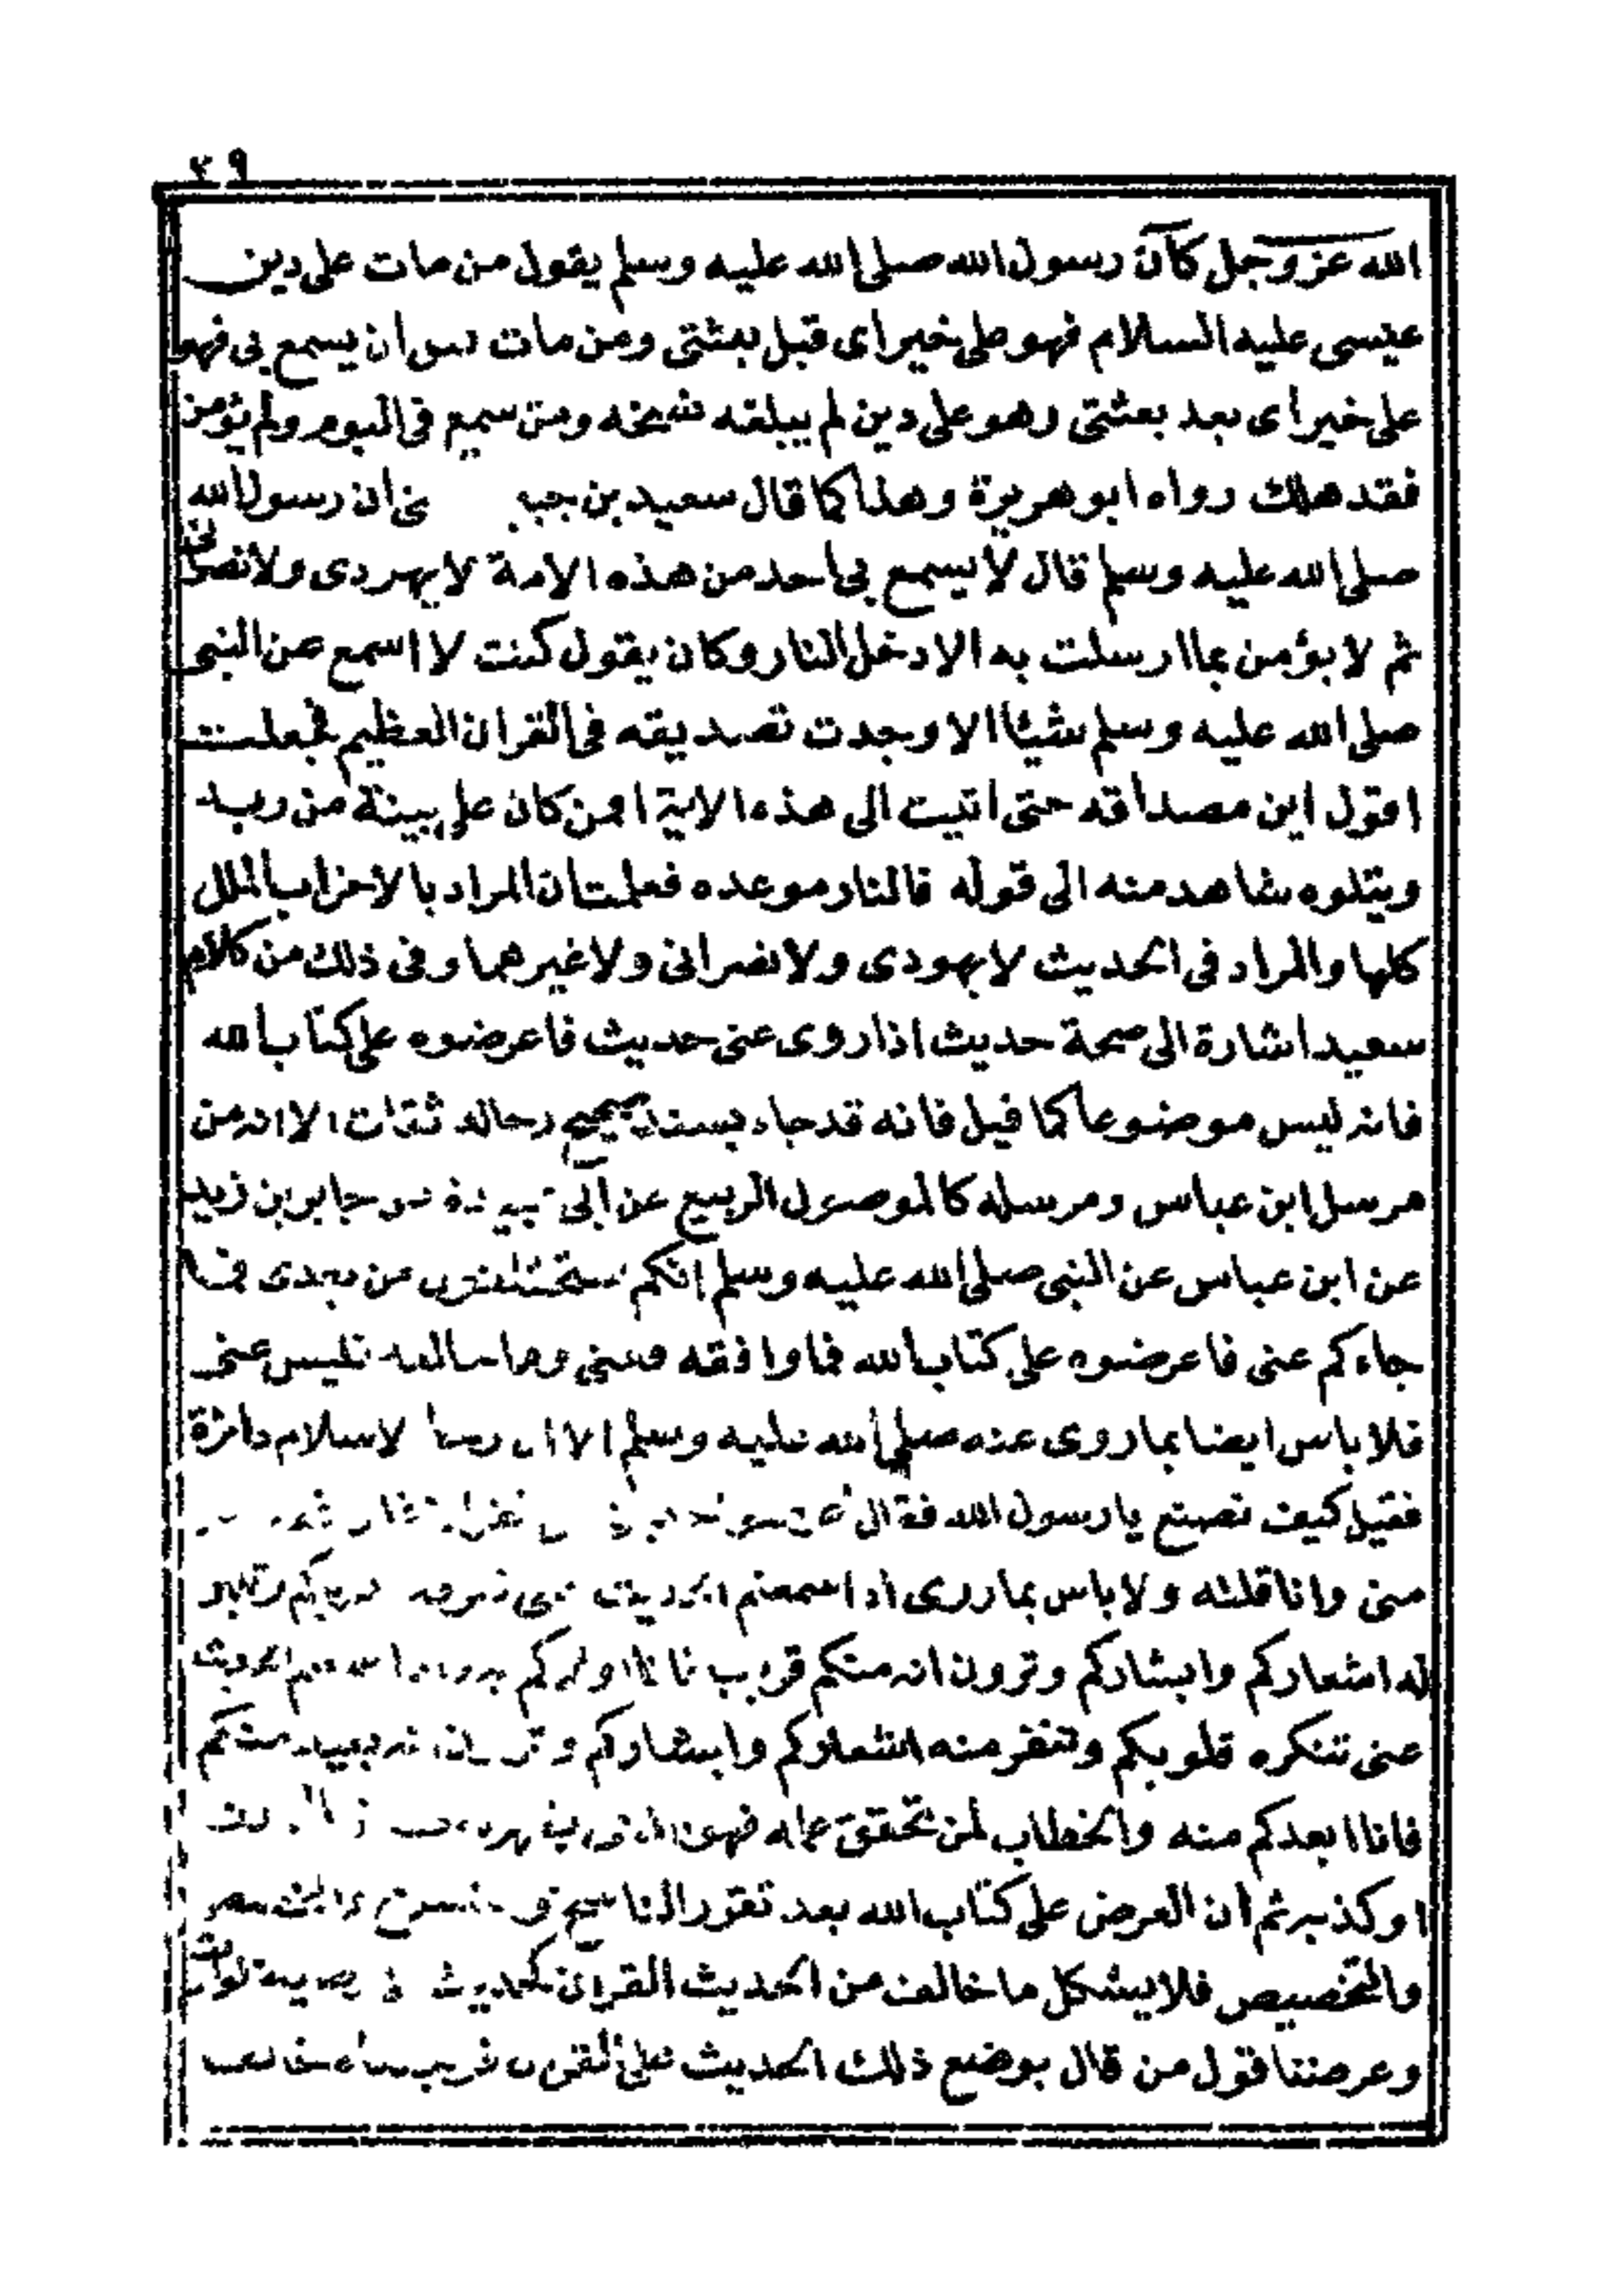 ٣٩
الله عز وجل كان رسول الله صلى الله عليه وسلم يقول من مات على دين
عيسى عليه السلام فهو على خير اى قبل بعثتى ومن مات ان يسمع بى فهو
على خير اى بعد بعثتى وهو على دين لم يبلغه نسخه ومن سمع فى اليوم ولم يؤمن
فقد هلك رواه ابو هريرة وهذا كما قال سعيد بن ان رسول الله
صلى الله عليه وسلم قال لا يسمع بى احد من هذه الامة لا يهودى ولا نصرانى
ثم لا يؤمن بما ارسلت به الا دخل النار وكان يقول كنت لا اسمع عن النبى
صلى الله عليه وسلم شيئا الا وجدت تصديقه فى القران العظيم فجعلت
اقول اين مصداقه حتى اتيت الى هذه الاية افمن كان على بينة من ربه
ويتلوه شاهد منه الى قوله فالنار موعده فعلمت ان المراد بالاحزاب الملل
كلها والمراد فى الحديث لا يهودى ولا نصرانى ولا غيرهما وفى ذلك من كلام
سعيد اشارة الى صحة حديث اذا روى عنى حديث فاعرضوه على كتاب الله
فانه ليس موضوعا كما قيل فانه قد جاء بسند صحيح رجاله ثقات الا انه من
مرسل ابن عباس ومرسله كالموصول الربيع عن ابى جابر بن زيد
عن ابن عباس عن النبى صلى الله عليه وسلم انكم ستختلفون من بعدى فما
جاءكم عنى فاعرضوه على كتاب الله فما وافقه فعنى وما خالفه فليس عنى
فلا باس ايضا بما روى عنه صلى الله عليه وسلم الا ان الاسلام دائرة
فقيل كيف نصنع يا رسول الله فقال
منى وانا قلته ولا باس بما روى اذا سمعتم الحديث عنى قلوبكم وتلين
له اشعاركم وابشاركم وترون انه منكم قريب فانا اولاكم به واذا سمعتم الحديث
عنى تنكره قلوبكم وتنفر منه اشعاركم وابشاركم وترون انه بعيد منكم
فانا ابعدكم منه والخطاب لمن تحقق عمله فهو
او كذبه ثم ان العرض على كتاب الله بعد تقرر الناسخ
والتخصيص فلا يشكل ما خالف من الحديث القران كحديث
وعرضنا قول من قال بوضع ذلك الحديث على القران